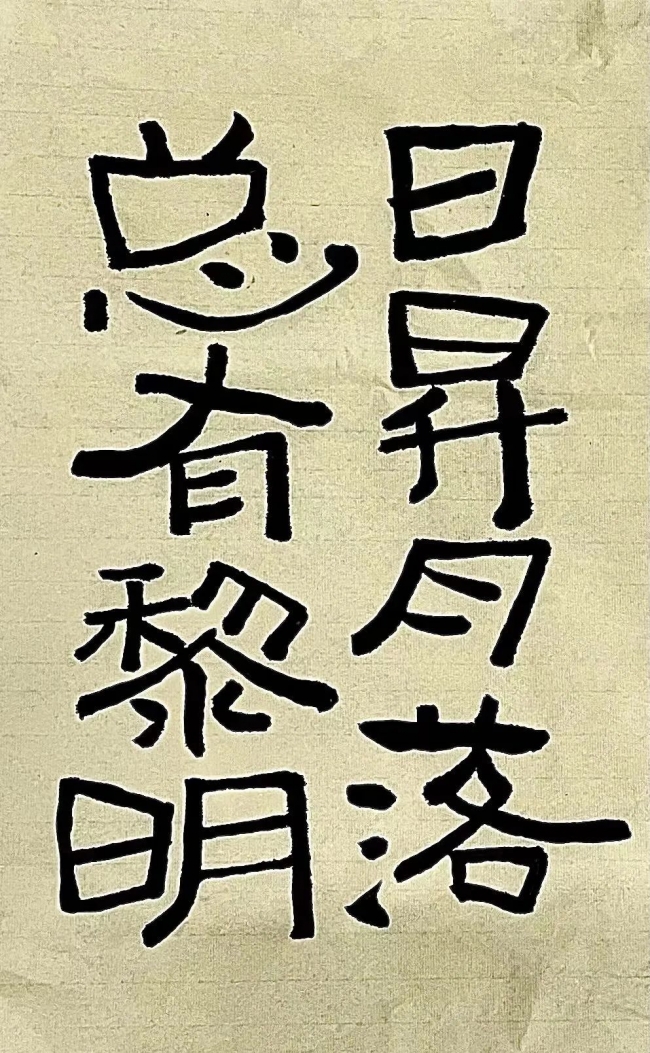 日昇月落
总有黎明